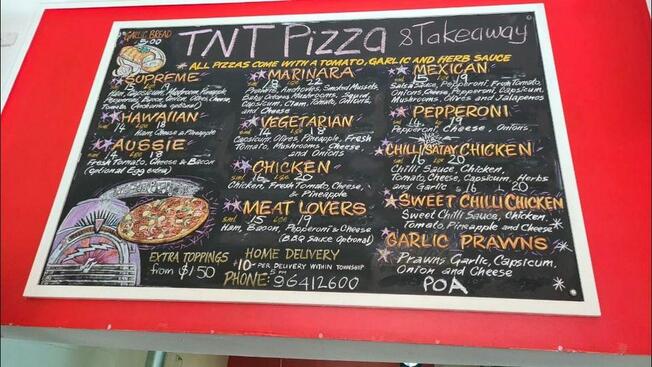 GARLIC BREAD
5.00
TNT Pizza & Takeaway
ALL PIZZAS COME WITH A TOMATO, GARLIC AND HERB SAUCE
SUPREME
Ham, Capsicum, Mushroom, Pineapple,
Pepperoni, Bacon, Onion, Olives, Cheese,
Tomato,
HAWAIIAN
14 18
Ham, Cheese & Pineapple
AUSSIE
sml 16 lge 18
Fresh Tomato, Cheese & Bacon
(optional Egg extra)
EXTRA TOPPINGS
from $1.50
MARINARA
lge 22
Prawns, Anchovies, Smoked Mussels,
Baby Octopus, Mushrooms, Squid,
Capsicum, Clam, Tomato, Onions,
and Cheese
VEGETARIAN
14 18
Capsicum, Olives, Pineapple, Fresh
Tomato, Mushrooms, Cheese,
and Onions
CHICKEN
sml 16 lge 20
Chicken, Fresh Tomato, Cheese,
& Pineapple
MEAT LOVERS
sml 15 lge 19
Ham, Bacon, Pepperoni & Cheese
(B.B.Q Sauce Optional)
HOME DELIVERY
$10 - PER DELIVERY WITHIN TOWNSHIP
5 PM
PHONE: 96412600
MEXICAN
15 19
Salsa Sauce, Pepperoni, Fresh Tomato,
Onions, Cheese, Pepperoni, Capsicum,
Mushrooms, Olives and Jalapenos
PEPPERONI
19
Pepperoni, Cheese, Onions,
CHILLI/SATAY CHICKEN
sml 16 lge 20
Chilli Sauce, Chicken,
Tomato, Cheese, Capsicum, Herbs
and Garlic s 16 L 20
SWEET CHILLI CHICKEN
Sweet Chilli Sauce, Chicken,
Tomato, Pineapple and Cheese
GARLIC PRAWNS
Prawns Garlic, Capsicum,
Onion and Cheese
POA